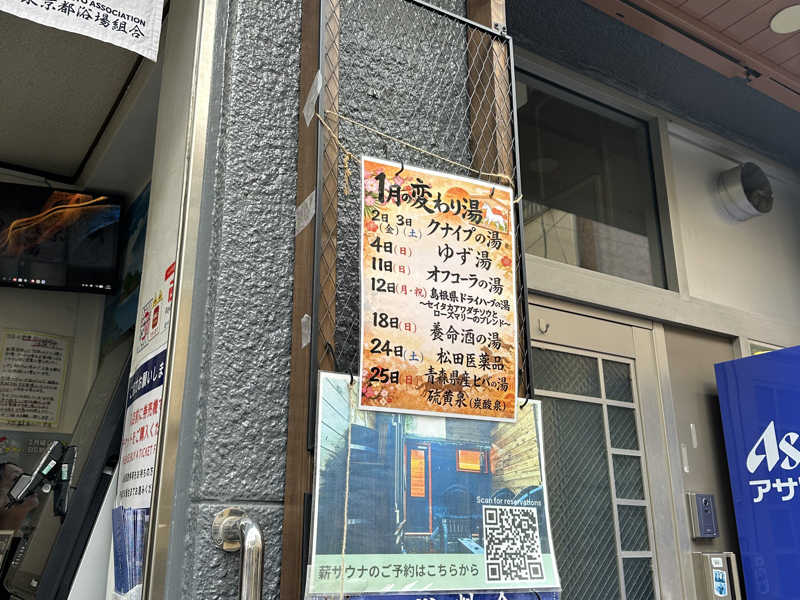 TO ASSOCIATION
東京都浴場組合
1月の変わり湯
2日(金) 3日(土) クナイプの湯
4日(日) ゆず湯
11日(日) オフコーラの湯
12日(月・祝) 島根県ドライハーブの湯
～セイタカアワダチソウと
ローズマリーのブレンド～
18日(日) 養命酒の湯
24日(土) 松田医薬品
25日(日) 青森県産ヒバの湯
硫黄泉(炭酸泉)
Scan for reservations
薪サウナのご予約はこちらから
お願いしま
に券売機
ご購入くだ
A TICKET
As
アサ